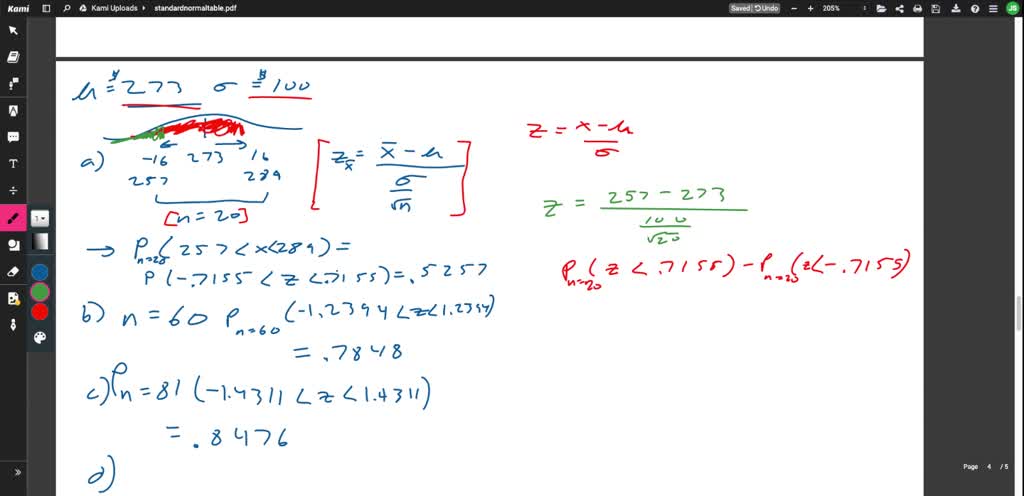 Kami
Kami Uploads
standardnormaltable.pdf
Saved Undo
205%
JS
μ = $273 σ = $100
a)
-16 273 16
257 289
[n = 20]
[z_x̄ = (x̄ - μ) / (σ/√n)]
→ P_n=20 (257 < x < 289) =
P(-.7155 < z < .7155) = .5257
b) n = 60 P_n=60 (-1.2394 < z < 1.2394)
= .7848
c) P n = 81 (-1.4311 < z < 1.4311)
= .8476
d)
z = (x - μ) / σ
z = (257 - 273) / (100/√20)
P_n=20 (z < .7155) - P_n=20 (z < -.7155)
T
1
Page 4 / 5